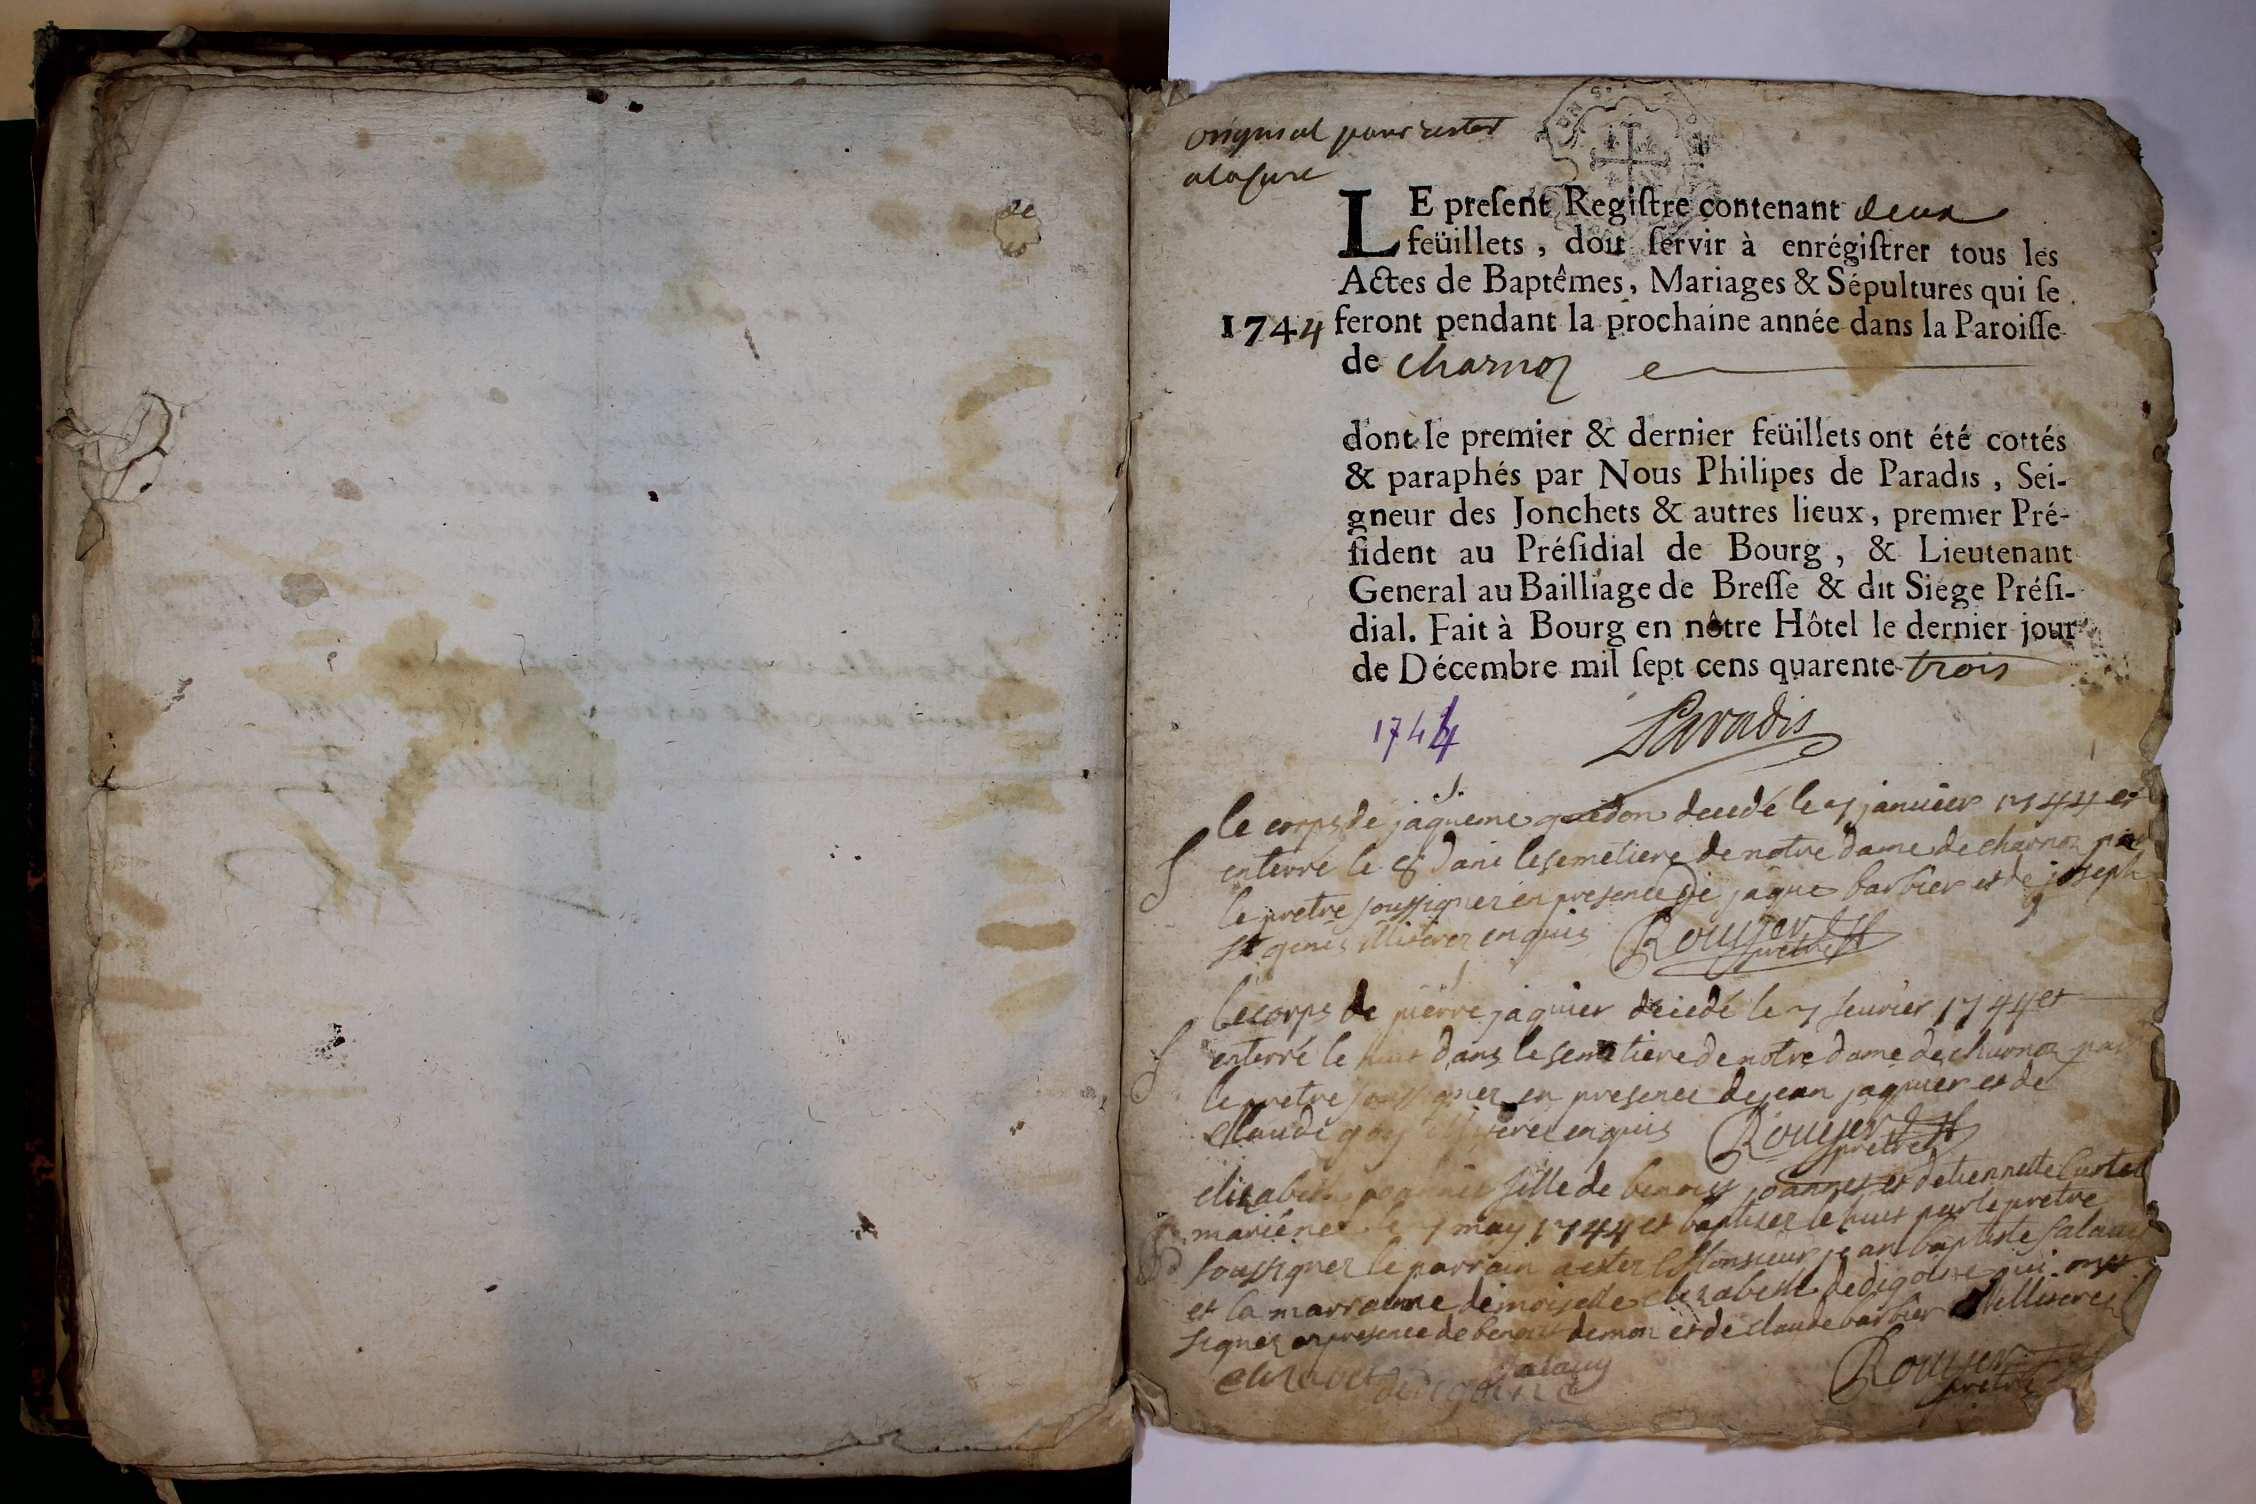 original pour rester
a la Cure
LE preſent Regiſtre contenant deux
feüillets, doit ſervir à enrégiſtrer tous les
Actes de Baptêmes, Mariages & Sépultures qui ſe
1744 feront pendant la prochaine année dans la Paroiſſe
de charnoz
dont le premier & dernier feüillets ont été cottés
& paraphés par Nous Philipes de Paradis, Sei-
gneur des Jonchets & autres lieux, premier Pré-
ſident au Préſidial de Bourg, & Lieutenant
General au Bailliage de Breſſe & dit Siége Préſi-
dial. Fait à Bourg en nôtre Hôtel le dernier jour
de Décembre mil ſept cens quarente trois
1744 Paradis
le corps de jaqueme guedon decedé le 7 janvier 1744 et
enterré le 8 dans le semetiere de notre dame de charnoz par
le pretre soussignez en presence de jaque barbier et de joseph
st genis illiterez enquis Rouyer pretre
S le corps de pierre jaquier decedé le 7 feuvrier 1744 et
enterré le huit dans le semetiere de notre dame de charnoz par
le pretre soussignez en presence de jean jaquier et de
claude goy illiterez enquis Rouyer pretre
elizabeth joannes fille de benoist joannes et detiennette Curtet
mariéne le 7 may 1744 et baptisez le huit par le pretre
soussignez le parrain a etez Monsieur jean baptiste salauy
et la marraine demoiselle elizabeth dedigoine qui ont
signez en presence de benoist demon et de claude barbier illiterez
elizabet dedigoine salauy Rouyer pretre